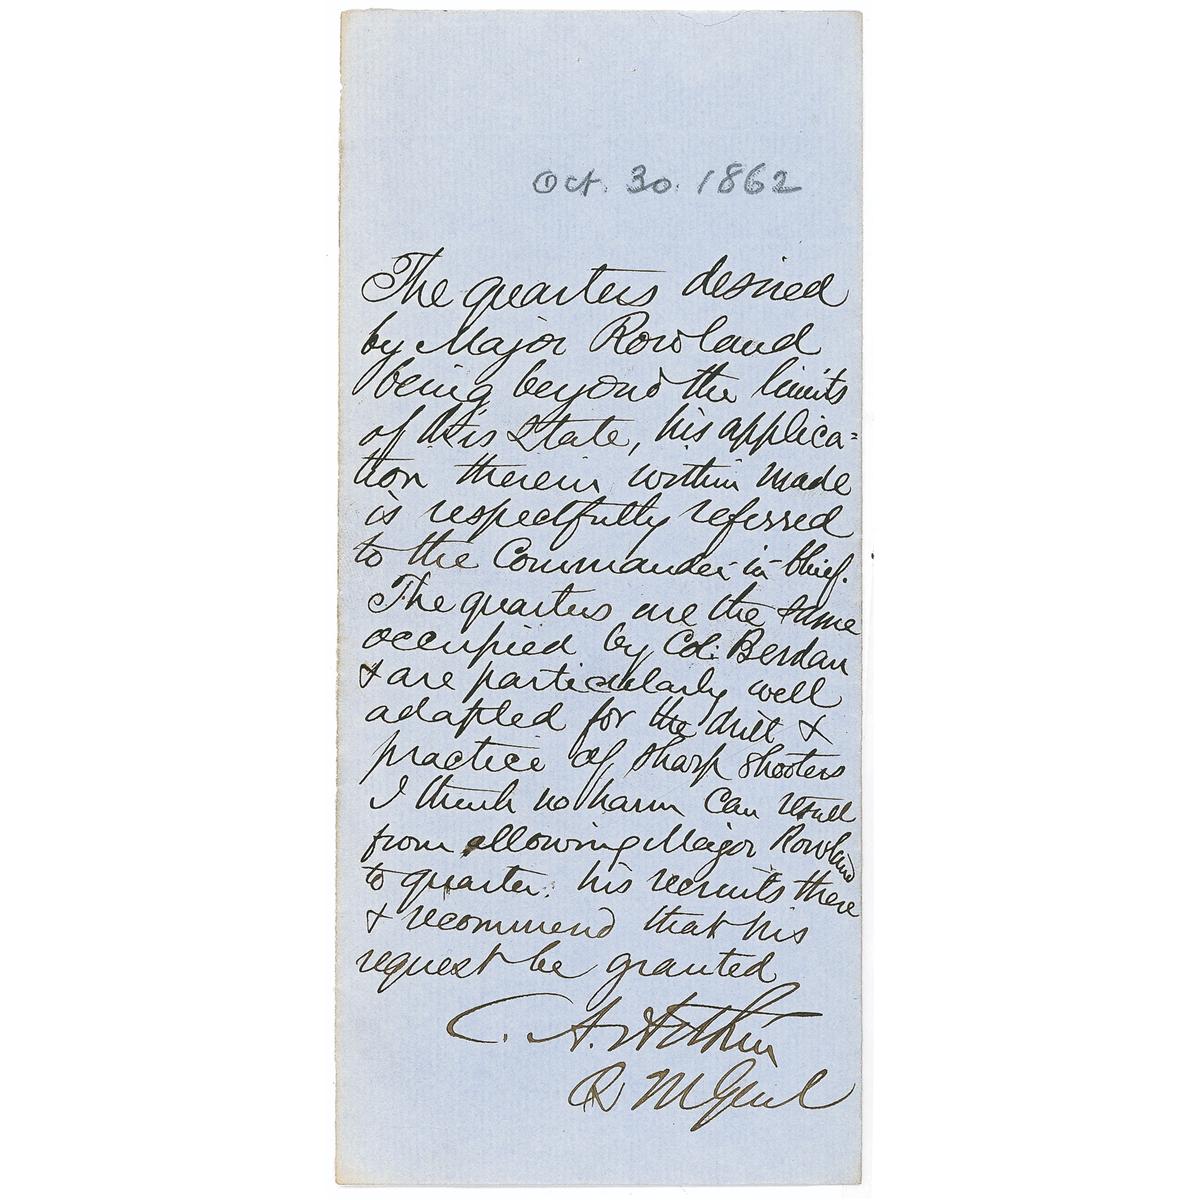 Oct. 30. 1862
The quarters desired
by Major Rowland
being beyond the limits
of this State, his applica=
tion therein within made
is respectfully referred
to the Commander-in-Chief.
The quarters are the same
occupied by Col: Berdan
& are particularly well
adapted for the drill &
practice of sharp shooters
I think no harm can result
from allowing Major Rowland
to quarter his recruits there
& recommend that his
request be granted
C. A. Arthur
Q M Genl